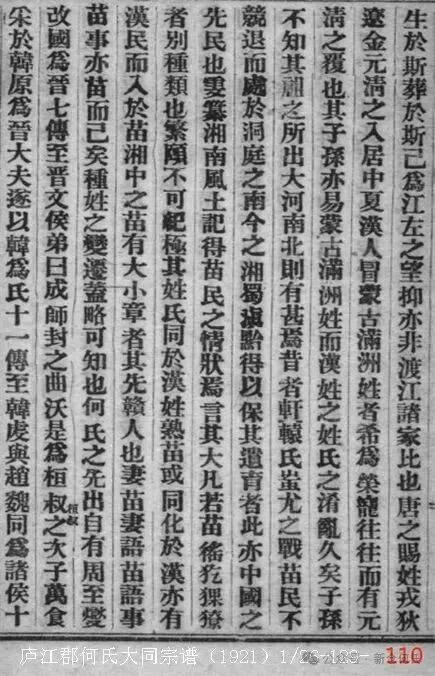 生於斯葬於斯已為江左之望抑亦非渡江諸家比也唐之賜姓戎狄
遼金元淸之入居中夏漢人冒蒙古滿洲姓者希為榮寵往往而有元
淸之覆也其子孫亦易蒙古滿洲姓而漢姓之姓氏之淆亂久矣子孫
不知其禰之所出大河南北則有甚焉昔者軒轅氏蚩尤之戰苗民不
競退而處於洞庭之南今之湘蜀滇黔得以保其遺育者此亦中國之
先民也雯纂湘南風土記得苗民之情狀焉言其大凡若苗徭犵猓獠
者別種類也繁頤不可紀極其姓氏同於漢姓熟苗或同化於漢亦有
漢民而入於苗湘中之苗有大小章者其先贛人也妻苗妻語苗語事
苗事亦苗而已矣種姓之變遷蓋略可知也何氏之先出自有周至燮
改國為晉七傳至晋文侯弟曰成師封之曲沃是為桓叔之次子萬食
桓叔
采於韓原為晉大夫遂以韓為氏十一傳至韓虔與趙魏同為諸侯十
庐江郡何氏大同宗谱（1921）1/26-189-
110